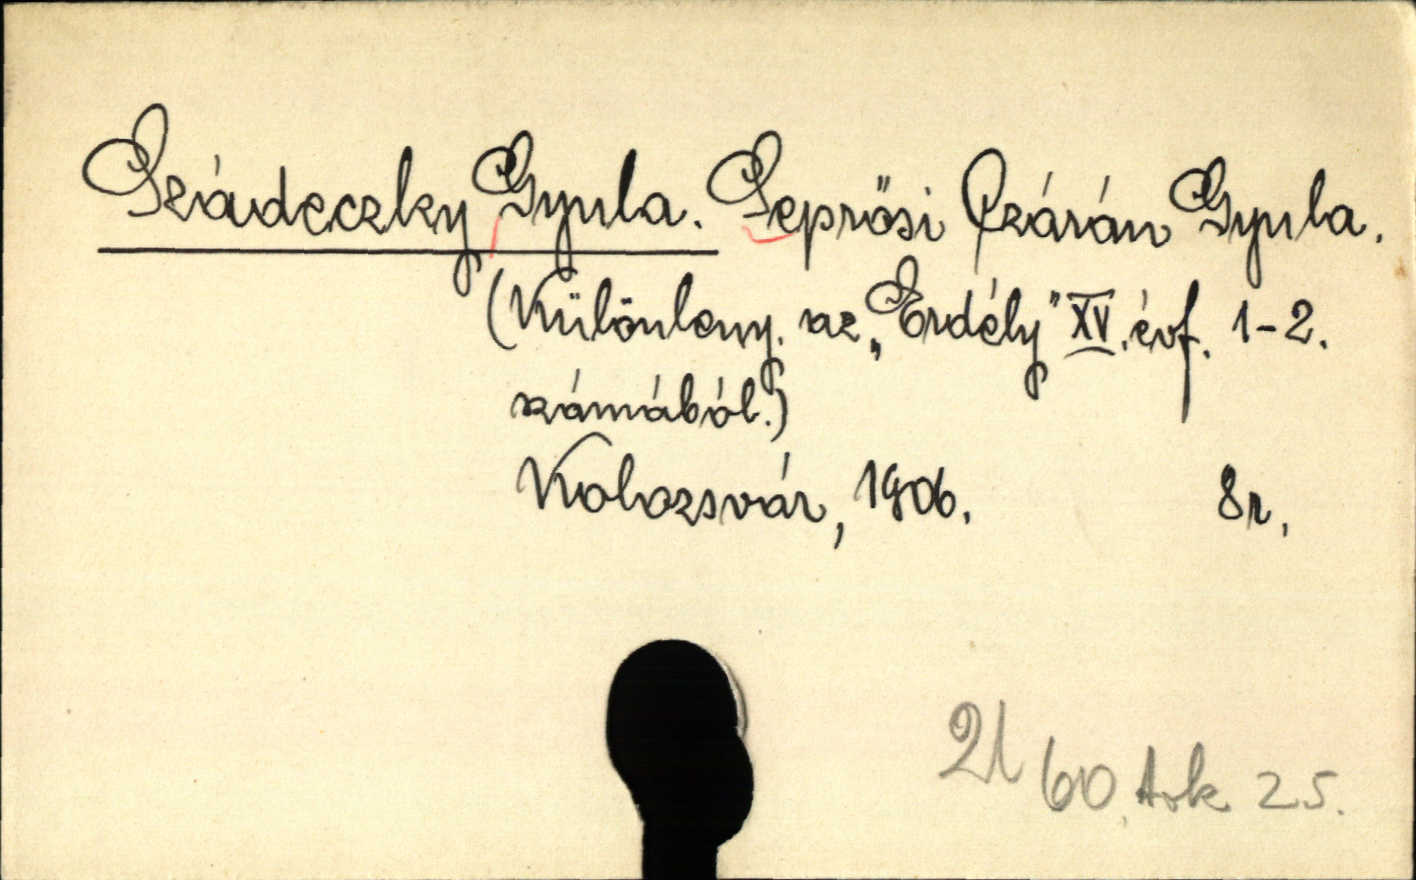 Szádeczky Gyula. Seprősi Czárán Gyula.
(Különleny. az „Erdély" XV. évf. 1-2.
számából.)
Kolozsvár, 1906. 8r.
21 60. Ark 25.